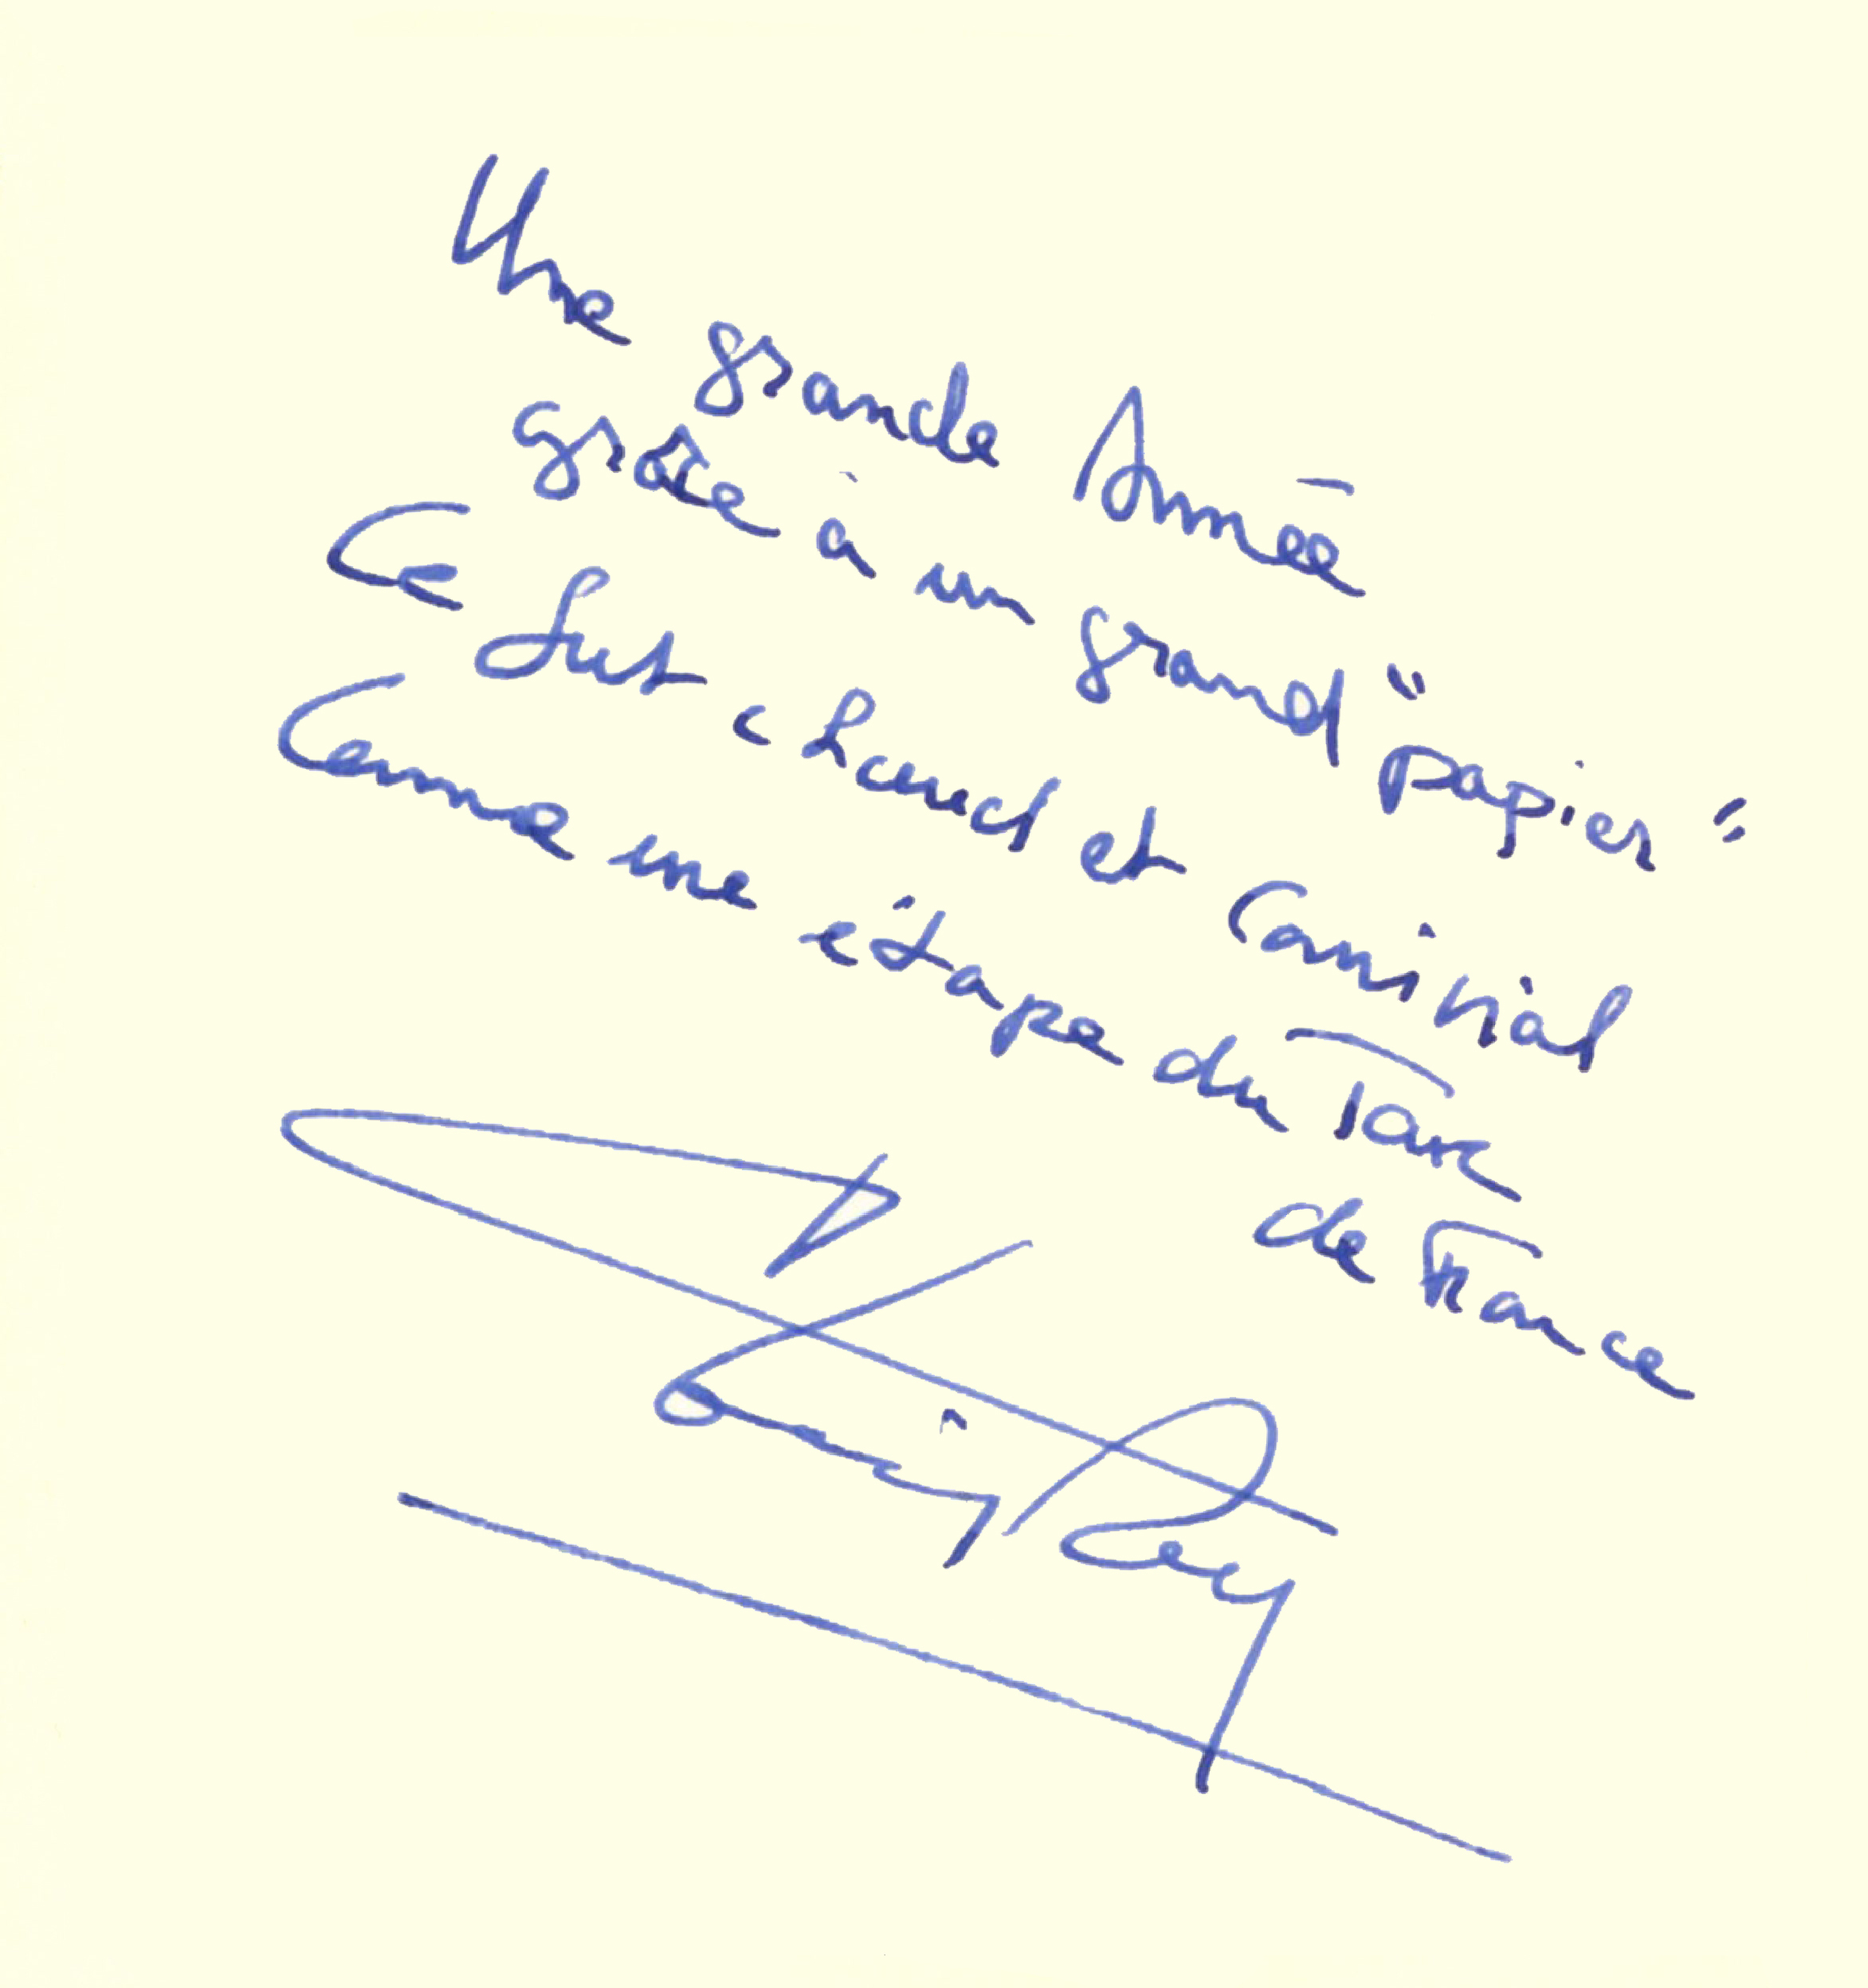 Une grande Année
grâce à un grand "papier"
Ce fut chaud et Convivial
Comme une étape du Tour
de France